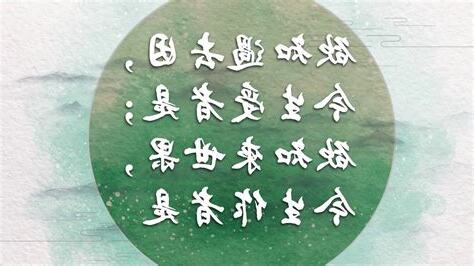 欲知過去因，
今生受者是；
欲知來世果，
今生作者是